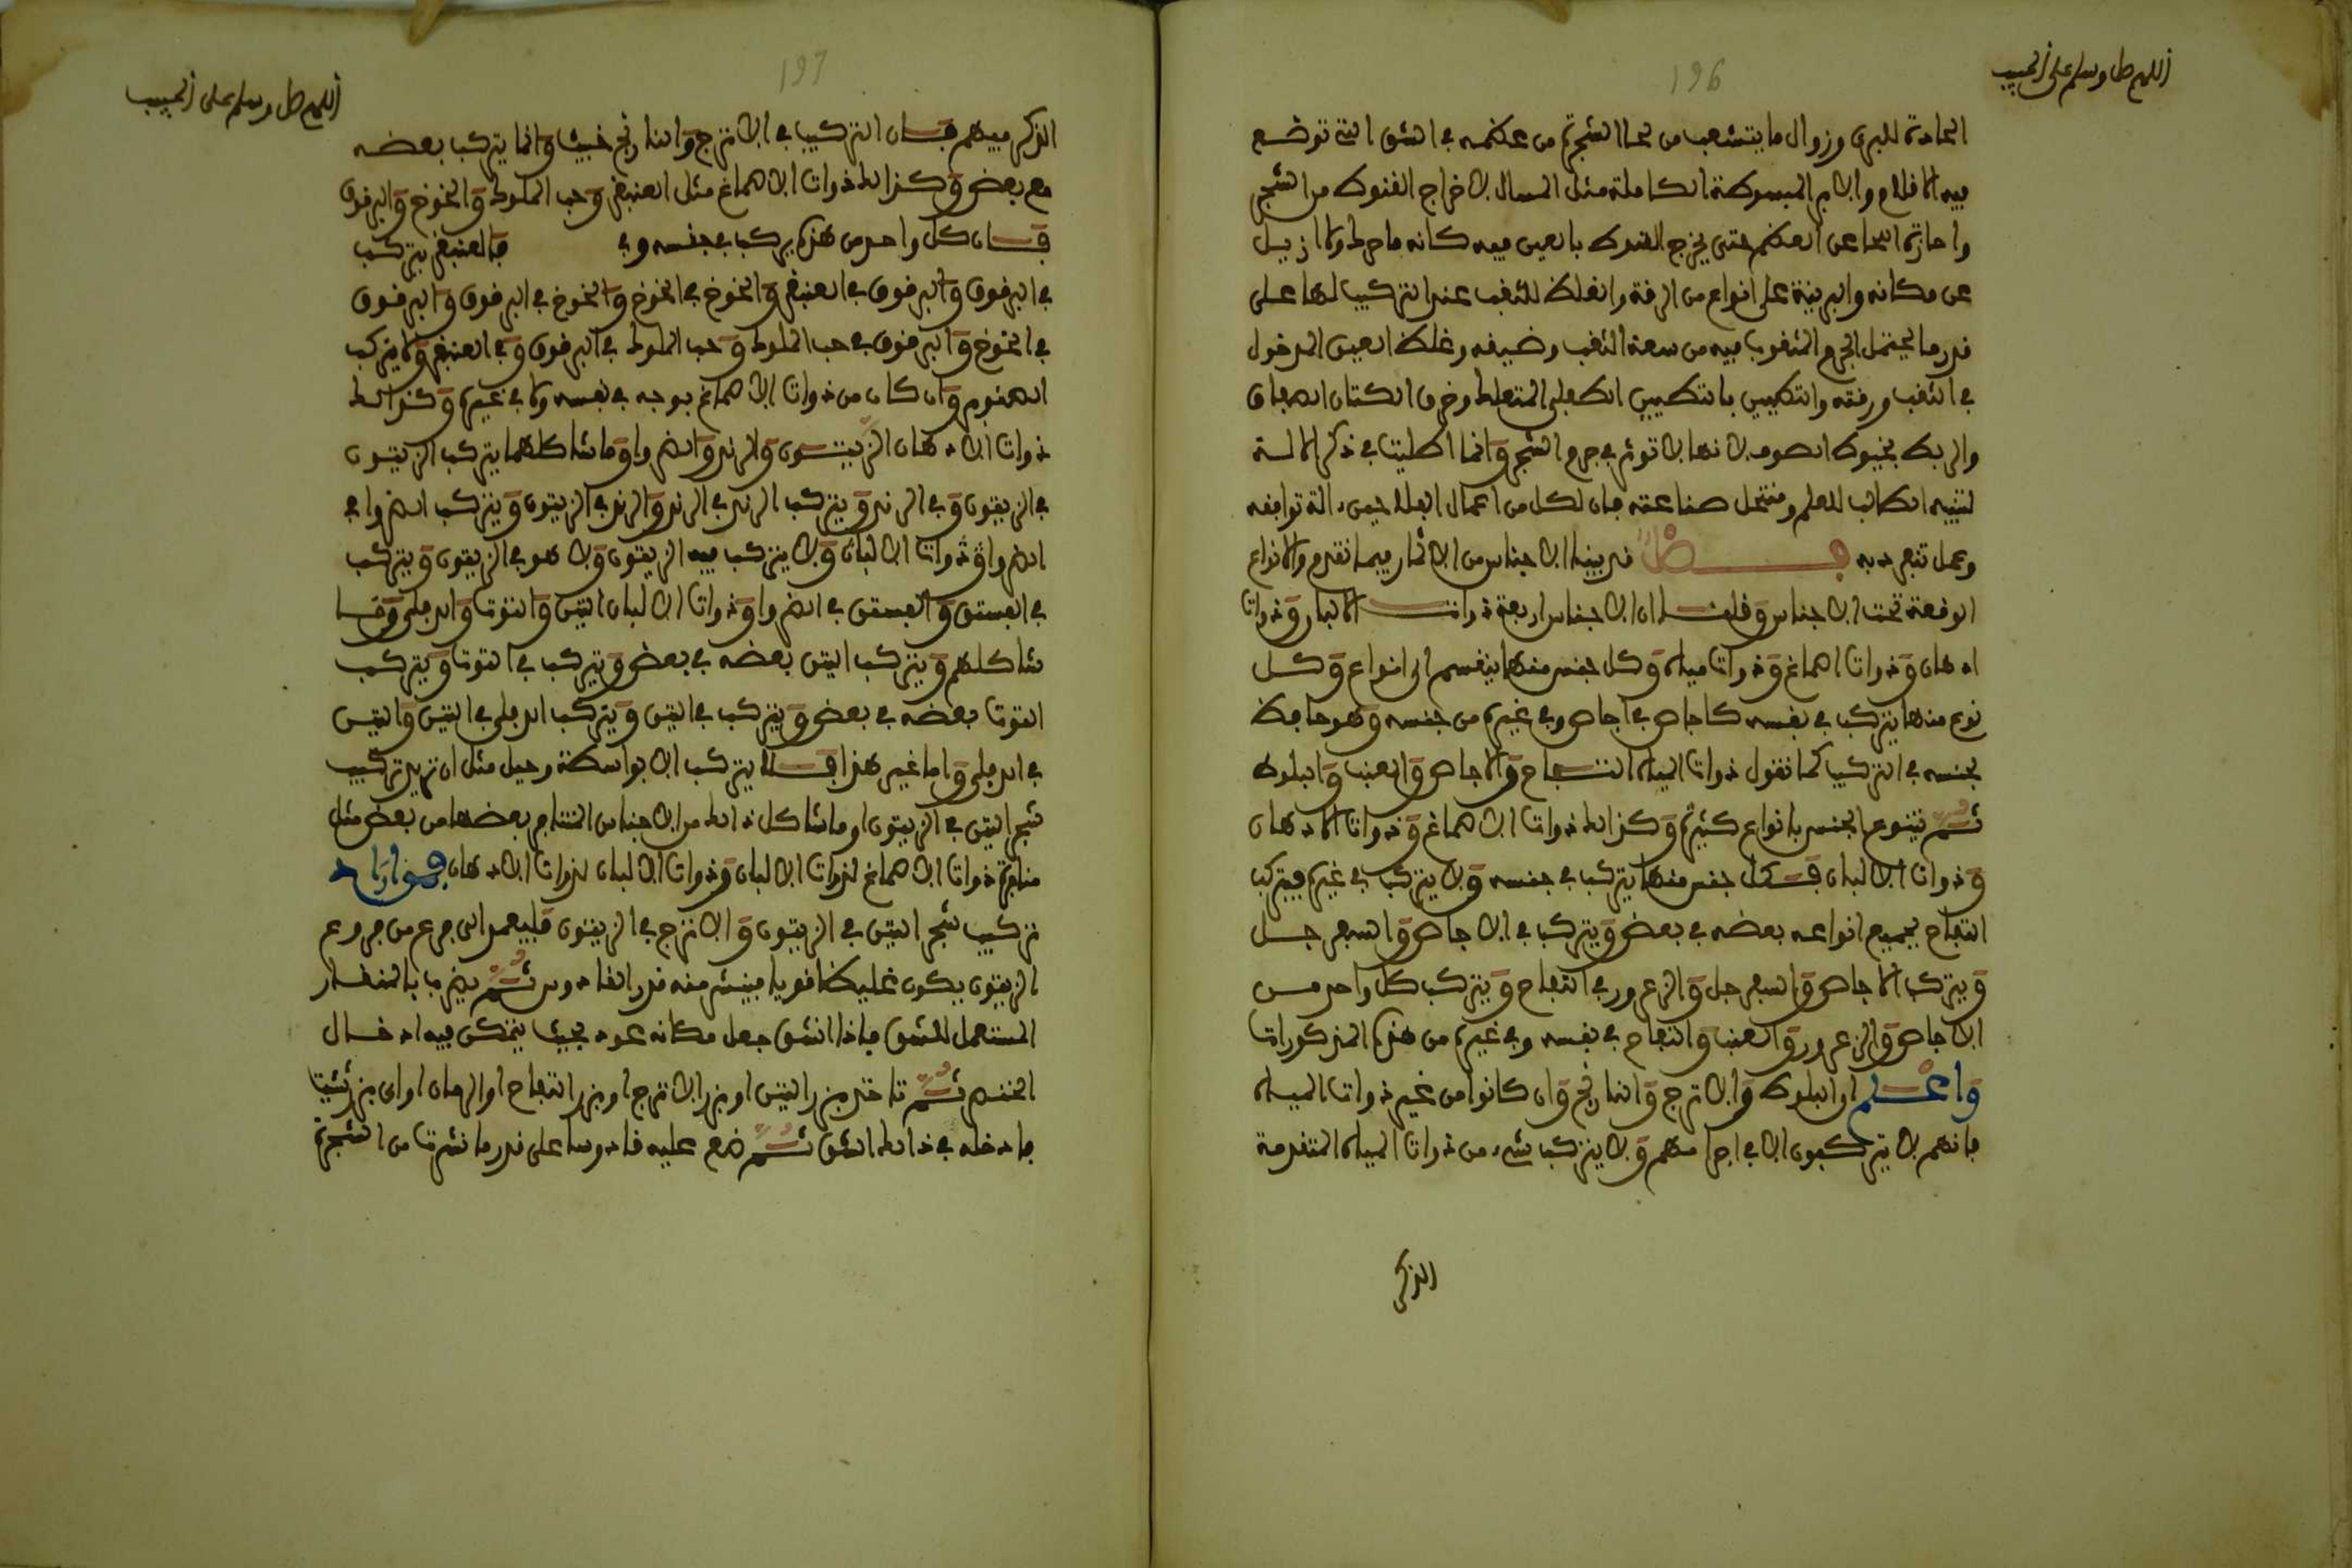 اللهم صل وسلم على الحبيب
196
الحادة للبري وزوال ما يتشعب من لحا الشجرة من عظمه في الشق التي توضع
فيه الاقلام والابر المبسوطة الكاملة مثل المسال لاخراج القنوط من الشجر
واحازة اللحا عن العظم حتى يخرج القنوط بالعين فيه كانه ما حط ولا ازيل
عن مكانه والبرينة على انواع من الرقة والغلظ للثقب عند التركيب لها على
قدر ما يحتمل الجرم المثقوب فيه من سعة الثقب وضيقه وغلظ العين المدخول
في الثقب ورقته والتطيين بالطين الطفلي المتعلك وخرق الكتان الصفاق
والربط بخيوط الصوف لانها لا تؤثر في جرم الشجر وانما اطلت في ذكر الالة
لتنبيه الطالب للعلم ومنتحل صناعته فان لكل من اعمال الفلاحين الة توافقه
وعمل تنفرد به فصل قد بينا الاجناس من الاثمار فيما تقدم والانواع
الوقعة تحت الاجناس وقلنا ان الاجناس اربعة ذوات الالبان وذوات
ادهان وذوات اصماغ وذوات مياه وكل جنس منها ينقسم الى انواع وكل
نوع منها يتركب في نفسه كاجاص في اجاص وفي غيره من جنسه وهو حافظ
لجنسه في التركيب كما نقول ذوات المياه التفاح والاجاص والعنب والبلوط
ثم يتنوع الجنس بانواع كثيرة وكذالك ذوات الاصماغ وذوات الادهان
وذوات الالبان فكل جنس منها يتركب في جنسه ولا يتركب في غيره فيتركب
التفاح بجميع انواعه بعضه في بعض ويتركب في الاجاص والسفرجل
ويتركب الاجاص والسفرجل والزعرور في التفاح ويتركب كل واحد من
الاجاص والزعرور والعنب والتفاح في نفسه وفي غيره من هذه المذكورات
واعلم ان البلوط والاترج والنارنج وان كانوا من غير ذوات المياه
فانهم لا يتركبون الا في اجرامهم ولا يتركب شيء من ذوات المياه المتقدمة
الذكر
اللهم صل وسلم على الحبيب
197
الذكر فيهم فان التركيب في الاترج والنارنج خبيث وانما يتركب بعضه
مع بعض وكذالك ذوات الاصماغ مثل العنبقر وحب الملوك والخوخ والبرقوق
فان كل واحد من هذه يركب في جنسه وفي فالعنبقر يتركب
في البرقوق والبرقوق في العنبقر والخوخ في الخوخ والخوخ في البرقوق والبرقوق
في الخوخ والبرقوق في حب الملوك وحب الملوك في البرقوق وفي العنبقر ولا يتركب
الصنوبر وان كان من ذوات الاصماغ بوجه في نفسه ولا في غيره وكذالك
ذوات الادهان الزيتون والرند والضرو وما شاكلهما يتركب الزيتون
في الزيتون وفي الرند ويتركب الرند في الرند والرند في الزيتون ويتركب الضرو في
الضرو وذوات الالبان ولا يتركب فيه الزيتون ولا هو في الزيتون ويتركب
في الفستق والفستق في الضرو وذوات الالبان التين والتوت والدفلى وما
شاكلهم ويتركب التين بعضه في بعض ويتركب في التوت ويتركب
التوت بعضه في بعض ويتركب في التين ويتركب الدفلى في التين والتين
في الدفلى واما غير هذا فلا يتركب الا بواسطة وحيل مثل ان تريد تركيب
شجر التين في الزيتون او ما شاكل ذالك من الاجناس المتنافر بعضها من بعض مثل
منافرة ذوات الاصماغ لذوات الالبان وذوات الالبان لذوات الادهان فمن اراد
تركيب شجر التين في الزيتون والاترج في الزيتون فليعمد الى فرع من فروع
الزيتون يكون غليظا قويا فينشر منه قدر القادوس ثم يضرب بالمنقار
المستعمل للشق فاذا انشق جعل مكانه عود بحيث يتمكن فيه ادخال
الخنصر ثم تاخذ بزر التين او بزر الاترج او بزر التفاح او الرمان او اي بزر شئت
فادخله في ذالك الشق ثم ضع عليه قادوسا على قدر ما نشرت من الشجرة